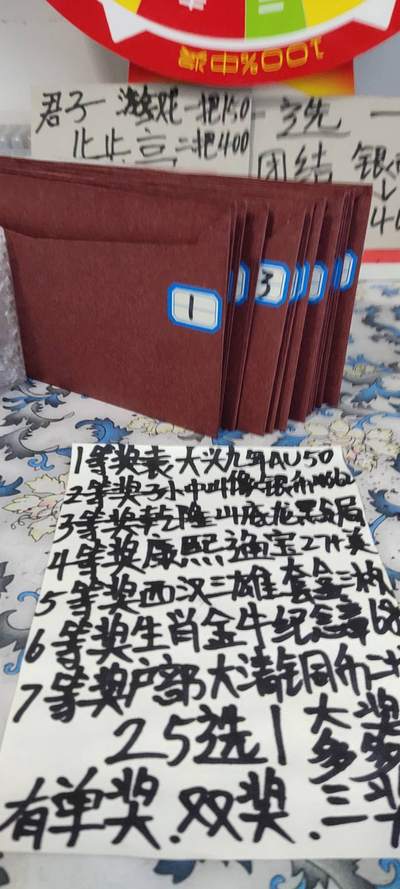 100%中奖
君子 游戏一把150
止止 二把400
字先 一
团结 银
1
3
1等奖袁大头九年AU50
2等奖孙中 像银币MS62
3等奖乾隆 底龙
4等奖康熙 宝27
5等奖西汉三雄套盒三枚
6等奖生肖金牛纪念章68
7等奖户部大清铜币二
25选1 大奖
多多
有单奖.双奖.三